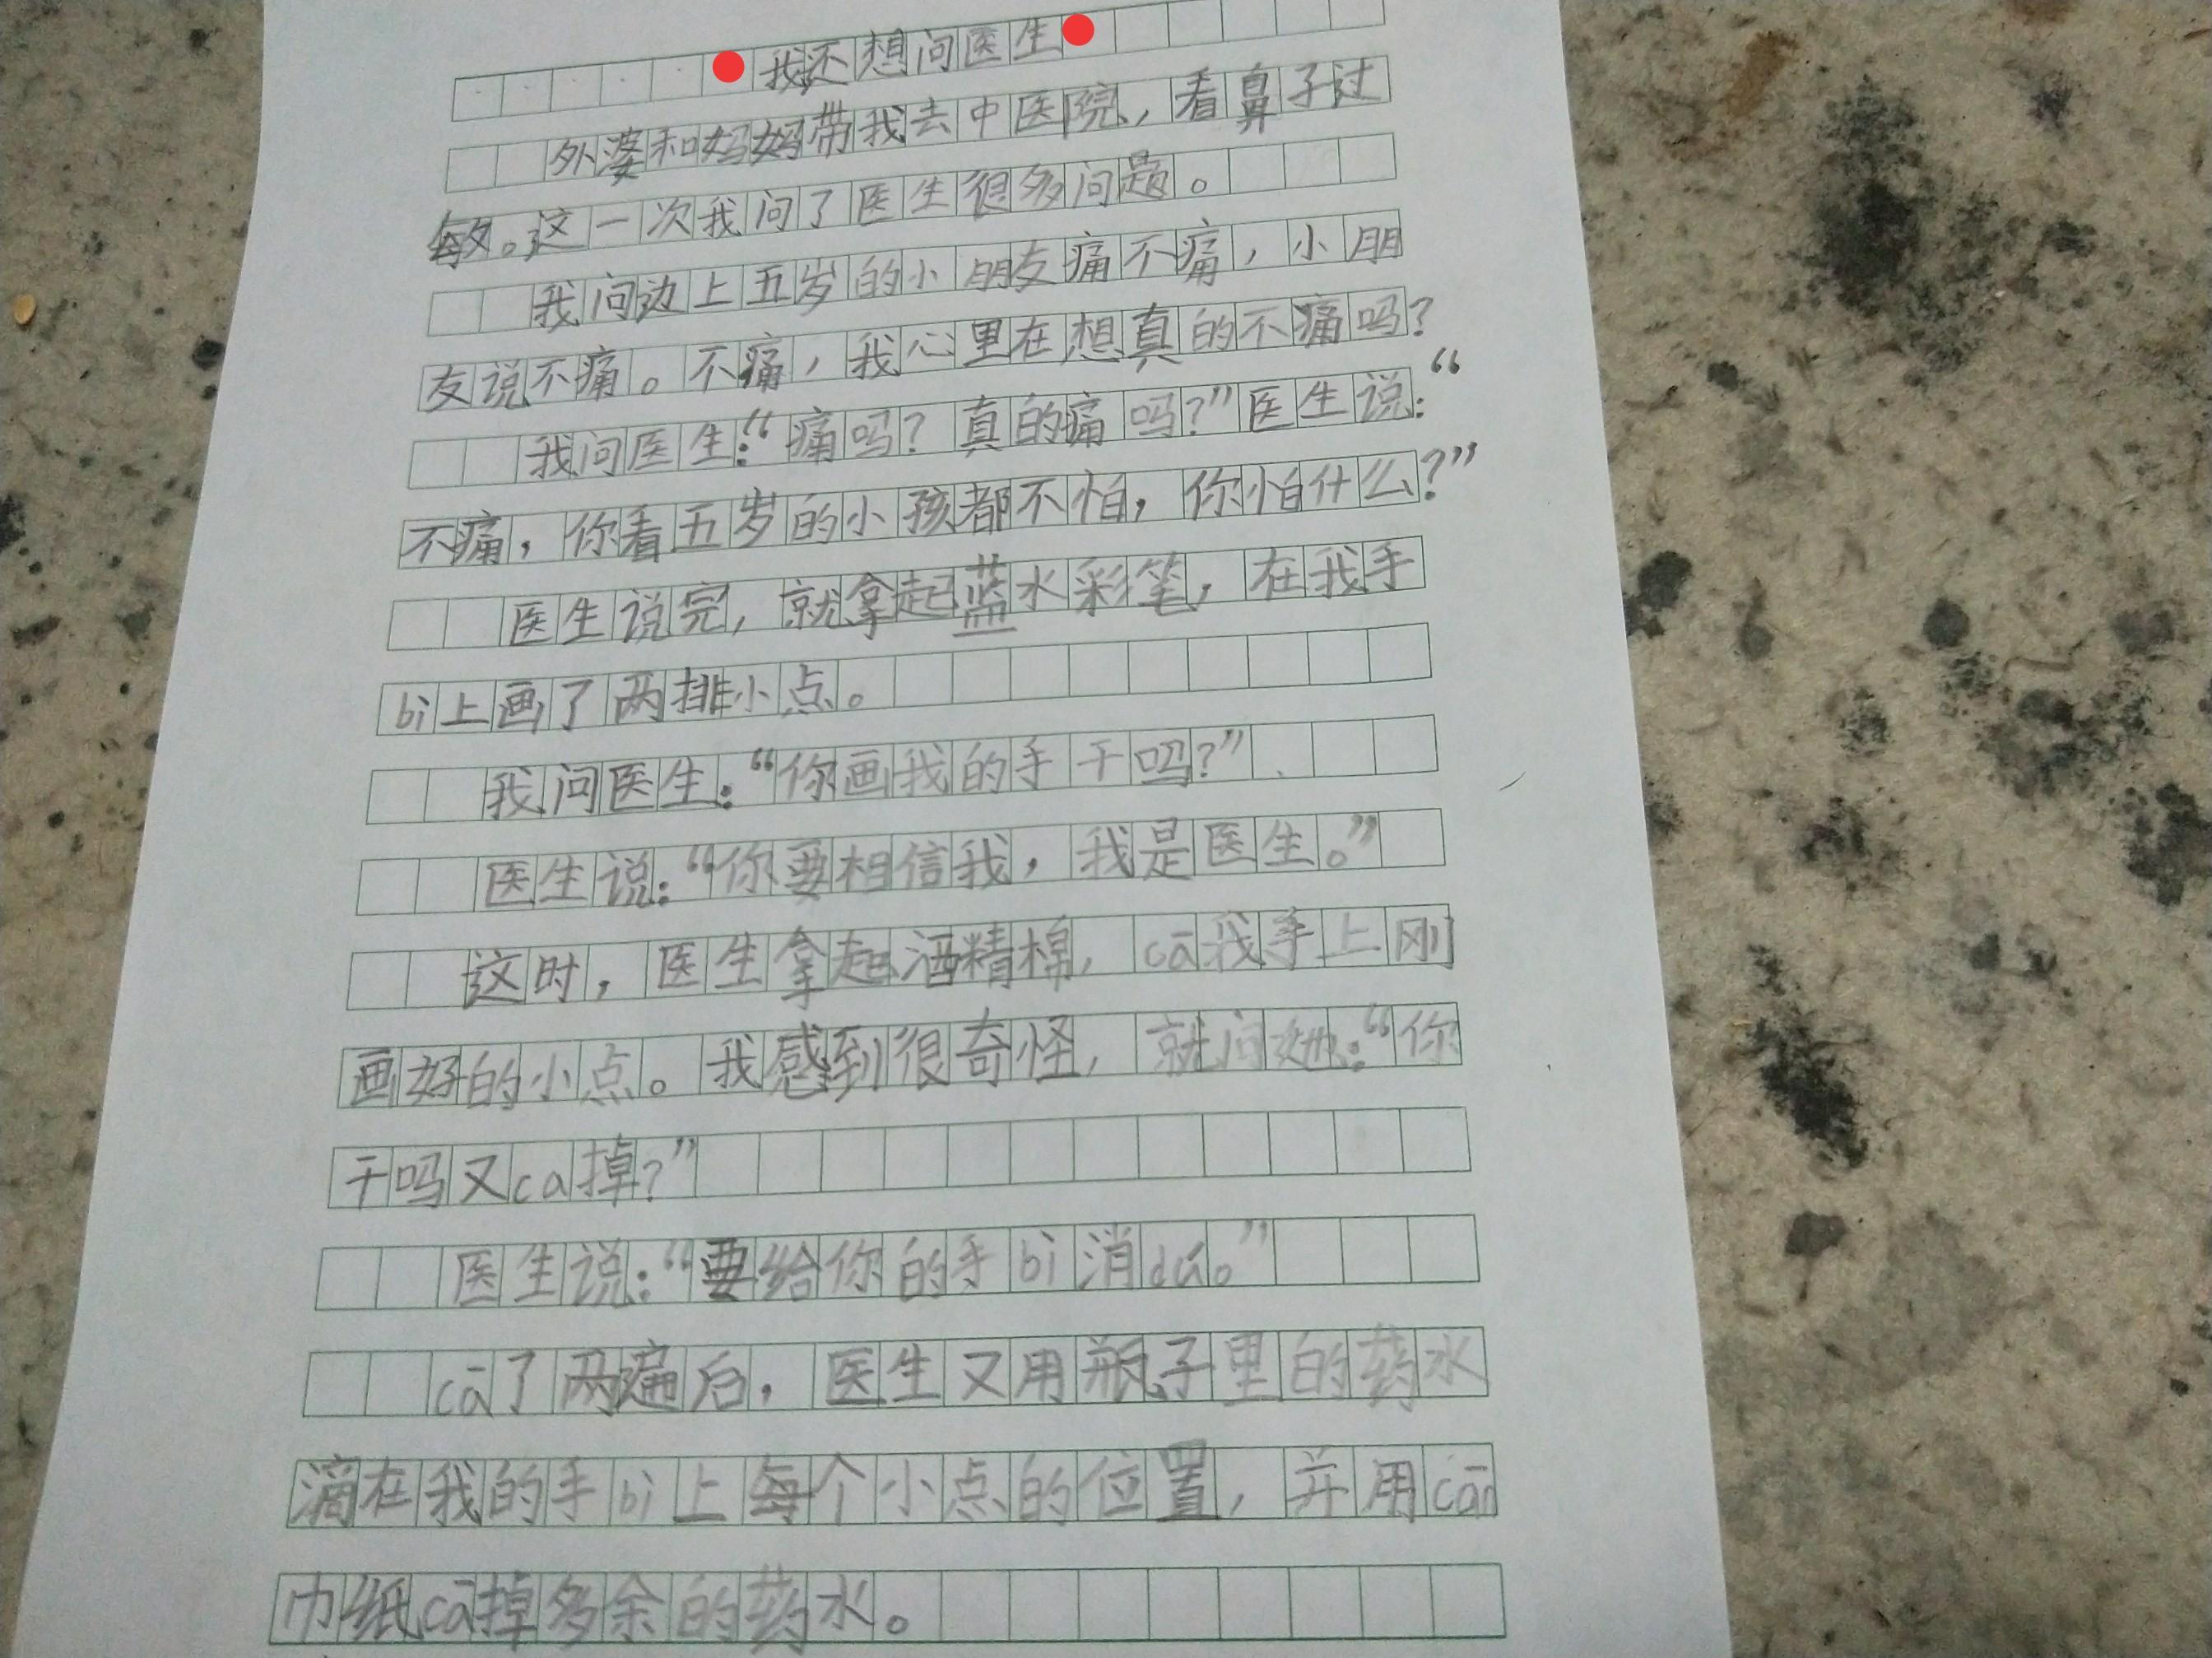 我还想问医生
外婆和妈妈带我去中医院，看鼻子过
敏。这一次我问了医生很多问题。
我问边上五岁的小朋友痛不痛，小朋
友说不痛。不痛，我心里在想真的不痛吗？
我问医生：“痛吗？真的痛吗？”医生说：“
不痛，你看五岁的小孩都不怕，你怕什么？”
医生说完，就拿起蓝水彩笔，在我手
bì上画了两排小点。
我问医生：“你画我的手干吗？”
医生说：“你要相信我，我是医生。”
这时，医生拿起酒精棉，cā我手上刚
画好的小点。我感到很奇怪，就问她：“你
干吗又ca掉？”
医生说：“要给你的手bì消dú。”
cā了两遍后，医生又用瓶子里的药水
滴在我的手bì上每个小点的位置，并用cān
巾纸cā掉多余的药水。